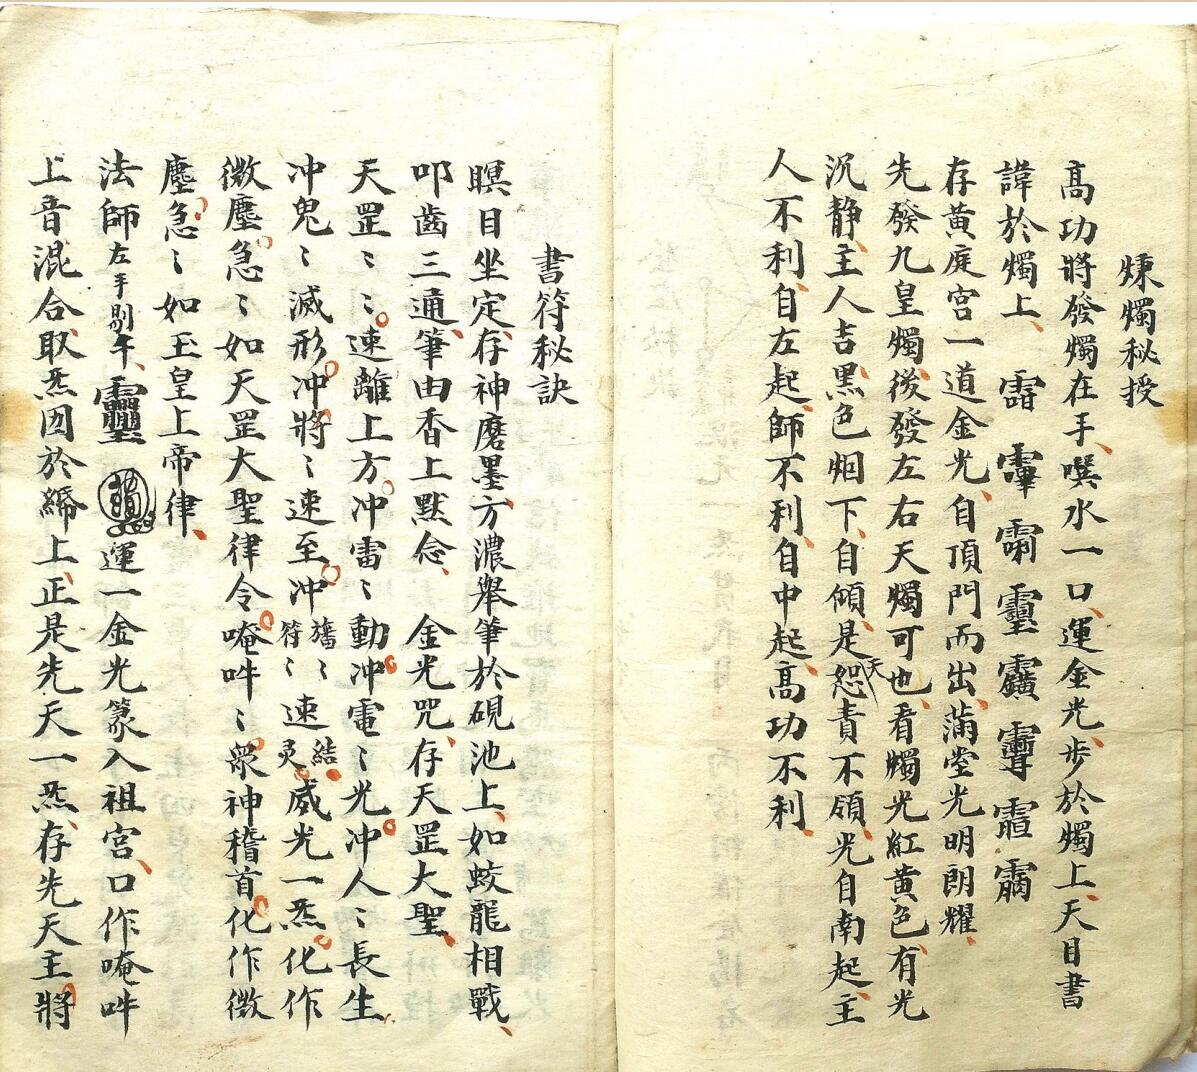 煉燭秘授
高功將發燭在手噀水一口運金光步於燭上天目書
諱於燭上
存黃庭宮一道金光自頂門而出滿堂光明朗耀
先發九皇燭後發左右天燭可也看燭光紅黃色有光
沉静主人吉黑色烟下自傾是天怨責不領光自南起主
人不利自左起師不利自中起高功不利
書符秘訣
瞑目坐定存神磨墨方濃舉筆於硯池上如蛟龍相戰
叩齒三通筆由香上默念 金光咒存天罡大聖
天罡〻速離上方冲雷〻動冲電〻光冲人〻長生
冲鬼〻滅形冲將〻速至冲旛符〻速結灵威光一炁化作
微塵急〻如天罡大聖律令唵吽〻衆神稽首化作微
塵急〻如玉皇上帝律
法師左手剔午運一金光篆入祖宮口作唵吽
上音混合取炁因於縧上正是先天一炁存先天主將